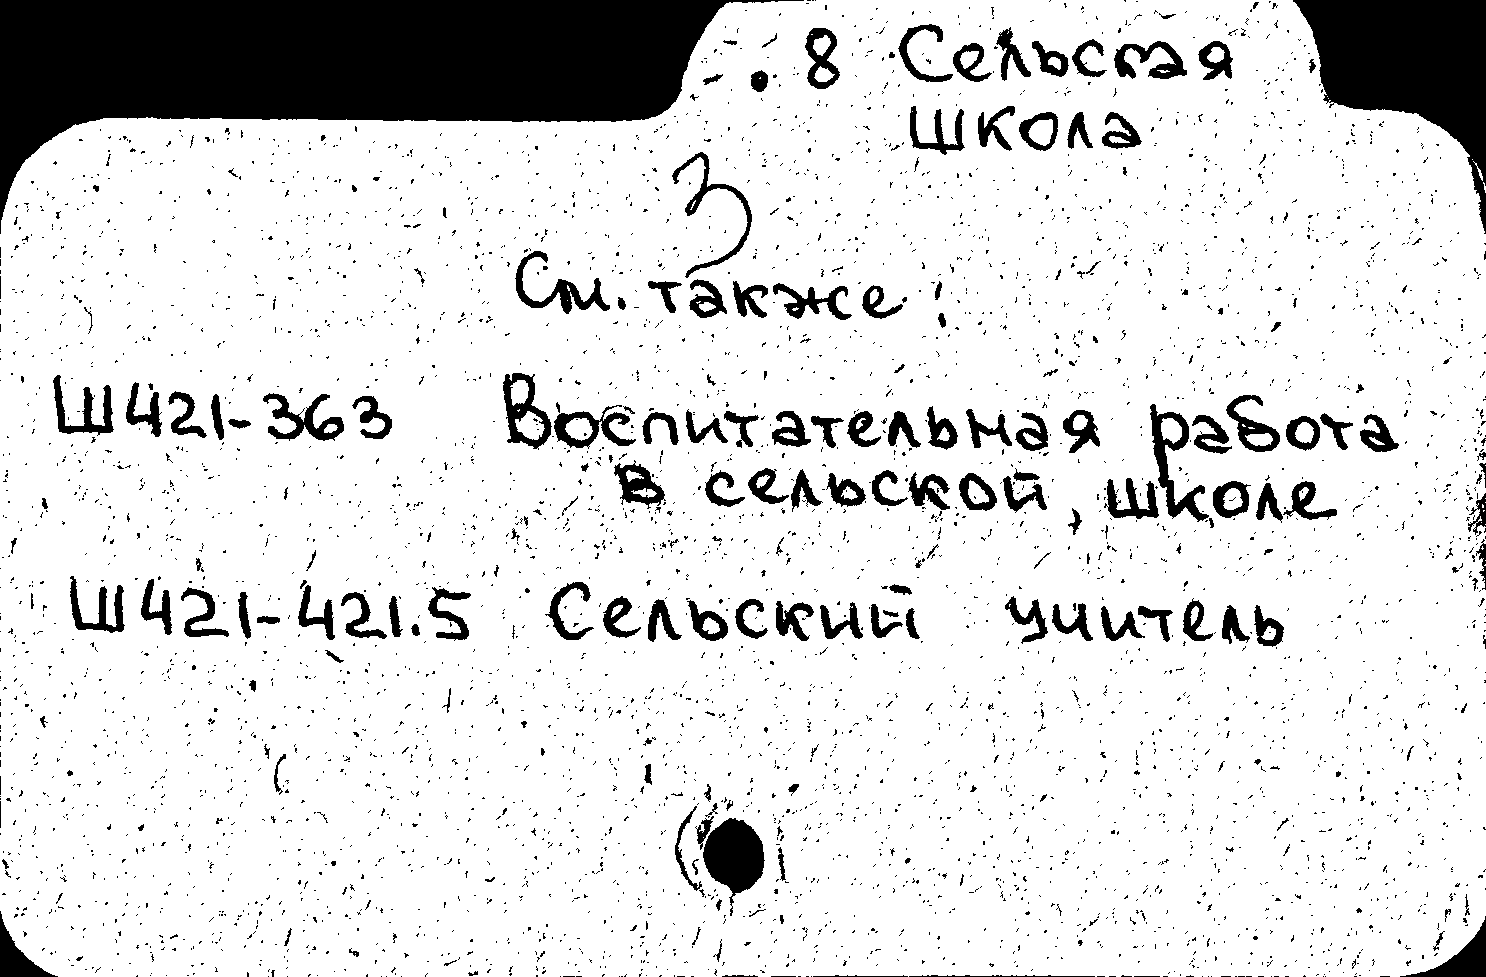 .8 Сельская
школа
3
См. также:
Ш421-363 Воспитательная работа
в сельской школе
Ш421-421.5 Сельский учитель